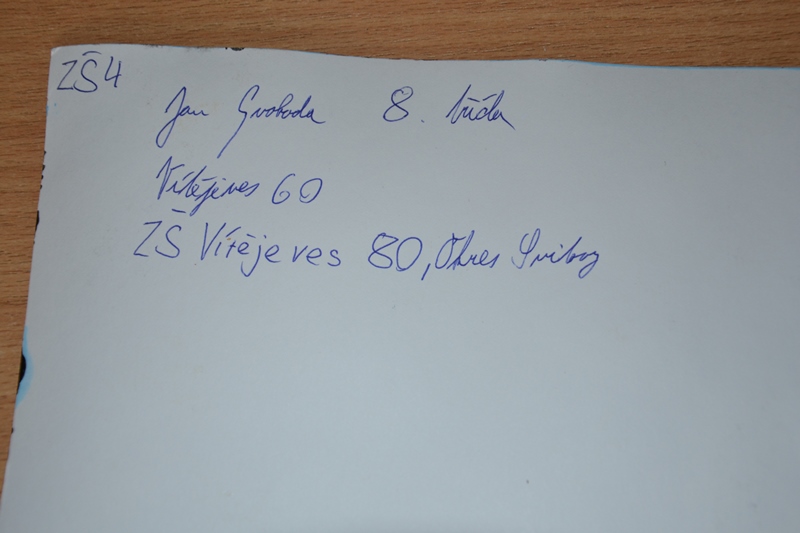 ZŠ4
Jan Svoboda 8. třída
Vítějeves 60
ZŠ Vítějeves 80, Okres Svitavy